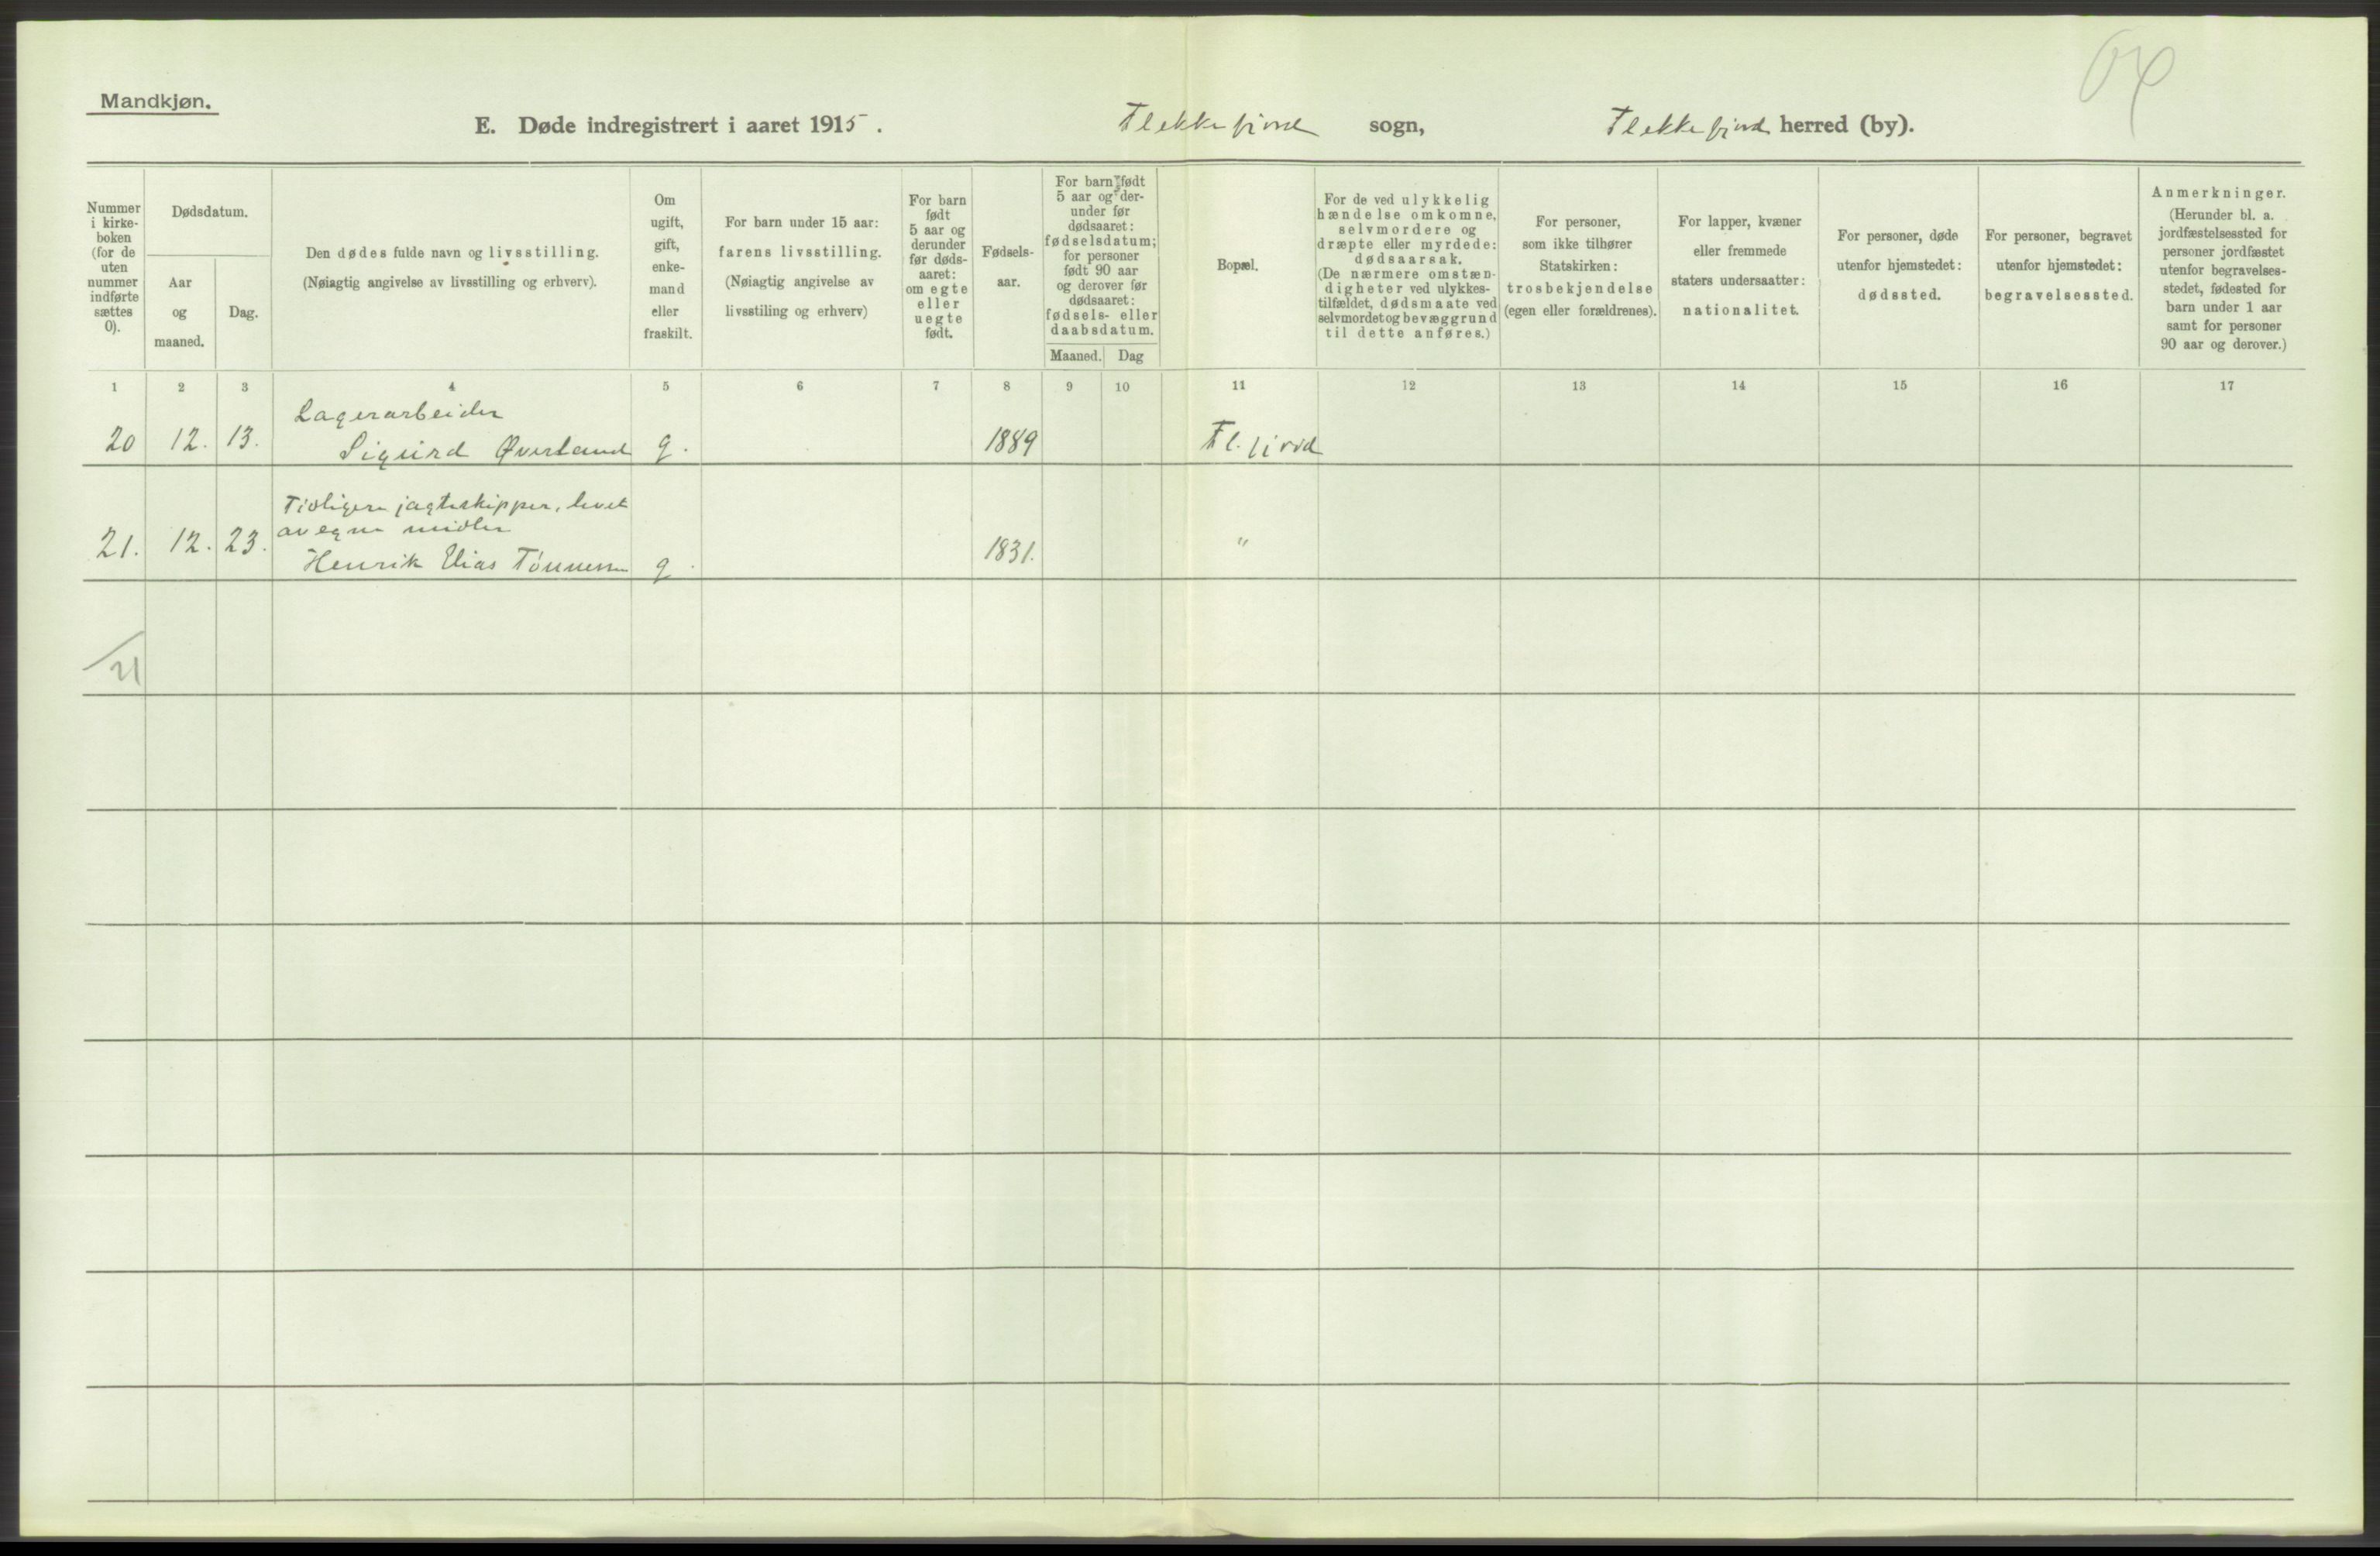 Mandkjøn.
E. Døde indregistrert i aaret 1915. Flekkefjord sogn, Flekkefjord herred (by).
Nummer
i kirke-
boken
(for de
uten
nummer
indførte
sættes
0).
Dødsdatum.
Aar
og
maaned.
Dag.
Den dødes fulde navn og livsstilling.
(Nøiagtig angivelse av livsstilling og erhverv).
Om
ugift,
gift,
enke-
mand
eller
fraskilt.
For barn under 15 aar:
farens livsstilling.
(Nøiagtig angivelse av
livsstiling og erhverv)
For barn
født
5 aar og
derunder
før døds-
aaret:
om egte
eller
uegte
født.
Fødsels-
aar.
For barn født
5 aar og der-
under før
dødsaaret:
fødselsdatum;
for personer
født 90 aar
og derover før
dødsaaret:
fødsels- eller
daabsdatum.
Maaned. Dag
Bopæl.
For de ved ulykkelig
hændelse omkomne,
selvmordere og
dræpte eller myrdede:
dødsaarsak.
(De nærmere omstæn-
digheter ved ulykkes-
tilfældet, dødsmaate ved
selvmordet og bevæggrund
til dette anføres.)
For personer,
som ikke tilhører
Statskirken:
trosbekjendelse
(egen eller forældrenes).
For lapper, kvæner
eller fremmede
staters undersaatter:
nationalitet.
For personer, døde
utenfor hjemstedet:
dødssted.
For personer, begravet
utenfor hjemstedet:
begravelsessted.
Anmerkninger.
(Herunder bl. a.
jordfæstelsessted for
personer jordfæstet
utenfor begravelses-
stedet, fødested for
barn under 1 aar
samt for personer
90 aar og derover.)
1 2 3 4 5 6 7 8 9 10 11 12 13 14 15 16 17
Lagerarbeider
20 12. 13. Sigurd Øverland g. 1889 Fl.fjord
Tidligere jagtskipper, levet
av egne midler
21. 12. 23. Henrik Elias Tönnesen g. 1831. "
21